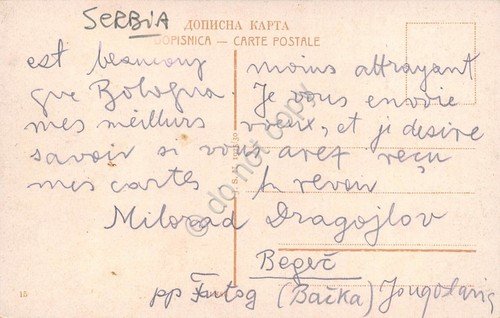 SERBIA
ДОПИСНА КАРТА
DOPISNICA — CARTE POSTALE
est beaucoup moins attrayant
que Bologna. Je vous envoie
mes meillurs voeux, et je desire
savoir si vous avez reçu
mes cartes
Milorad Dragojlov
Begeč
pp Futog (Bačka) Jougoslavie
15
do not copy